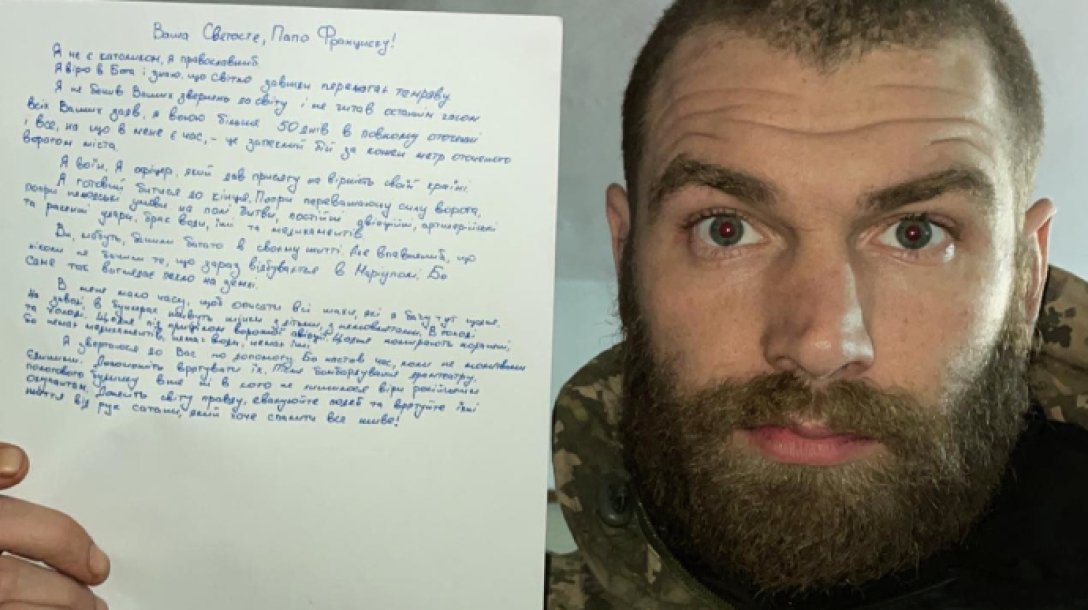 Ваша Святосте, Папо Франциску!
Я не є католиком, я православний.
Я вірю в Бога і знаю, що світло завжди перемагає темряву
Я не бачив Ваших звернень до світу і не читав останнім часом
всіх Ваших заяв, я воюю більше 50 днів в повному оточенні
і все, на що в мене є час, – це запеклий бій за кожен метр оточеного
ворогом міста
Я воїн. Я офіцер, який дав присягу на вірність своїй країні.
Я готовий битися до кінця. Попри переважаючу силу ворога,
попри нелюдські умови на полі битви, постійні авіаційні, артилерійські
та ракетні удари, брак води, їжі та медикаментів.
Ви, мабуть, бачили багато в своєму житті. Але впевнений, що
ніколи не бачили те, що зараз відбувається в Маріуполі. Бо
саме так виглядає пекло на землі.
В мене мало часу, щоб описати всі жахи, які я бачу тут щодня.
На заводі в бункерах живуть жінки з дітьми, з немовлятами. В голоді
та холоді. Щодня під прицілом ворожої авіації. Щодня помирають поранені,
бо немає медикаментів, немає води, немає їжі.
Я звертаюся до Вас по допомогу. Бо настав час, коли не молитвами
єдиними. Допоможіть врятувати їх. Після бомбардування драмтеатру,
пологового будинку вже ні в кого не лишилося віри російським
окупантам. Донесіть світу правду, евакуюйте людей та врятуйте їхні
життя від рук сатани, який хоче спалити все живе!